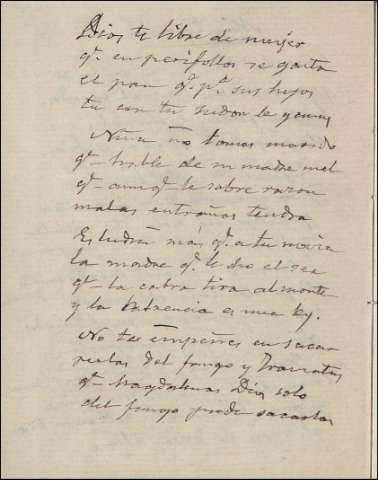 Dios te libre de mujer
q.e en perifollos se gasta
el pan q.e p.a sus hijos
tu con tu sudor le ganas
Niña no tomes marido
q.e hable de su madre mal
q.e aunq.e le sobre razon
malas entrañas tendra
Estudia más q.e a tu novia
la madre q.e le dio el ser
q.e la cabra tira al monte
y la herencia es una ley.
No te empeñes en sacar
perlas del fango y
q.e Magdalenas Dios solo
del fango puede sacarlas